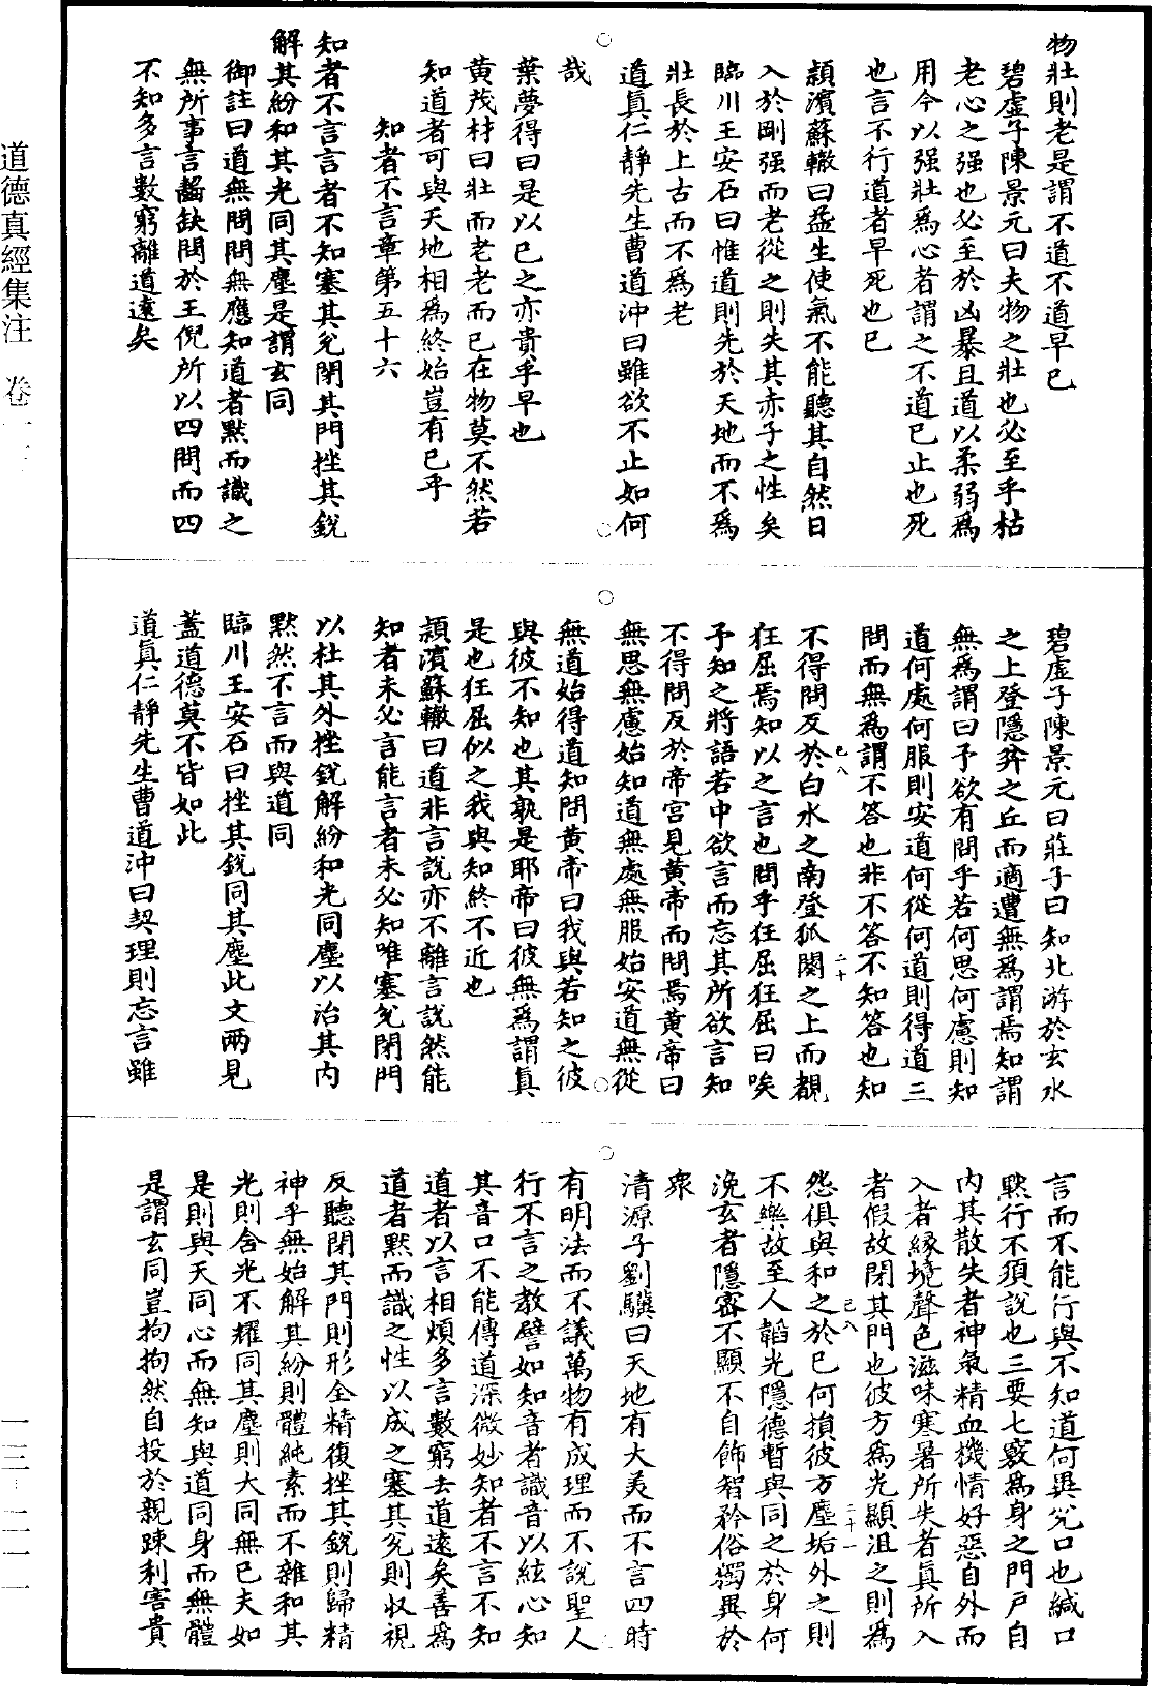 物壯則老是謂不道不道早已
碧虛子陳景元曰夫物之壯也必至乎枯
老心之强也必至於凶暴且道以柔弱爲
用今以强壯爲心者謂之不道已止也死
也言不行道者早死也已
頴濱蘇轍曰益生使氣不能聽其自然日
入於剛强而老從之則失其赤子之性矣
臨川王安石曰惟道則先於天地而不爲
壯長於上古而不爲老
道眞仁靜先生曹道沖曰雖欲不止如何
哉
葉夢得曰是以已之亦貴乎早也
黃茂材曰壯而老老而已在物莫不然若
知道者可與天地相爲終始豈有已乎
知者不言章第五十六
知者不言言者不知塞其兌閉其門挫其銳
解其紛和其光同其塵是謂玄同
御註曰道無問問無應知道者默而識之
無所事言齧缺問於王倪所以四問而四
不知多言數窮離道遠矣
碧虛子陳景元曰莊子曰知北游於玄水
之上登隱弅之丘而適遭無爲謂焉知謂
無爲謂曰予欲有問乎若何思何慮則知
道何處何服則安道何從何道則得道三
問而無爲謂不答也非不答不知答也知
不得問反於白水之南登狐闋之上而覩
狂屈焉知以之言也問乎狂屈狂屈曰唉
予知之將語若中欲言而忘其所欲言知
不得問反於帝宮見黃帝而問焉黃帝曰
無思無慮始知道無處無服始安道無從
無道始得道知問黃帝曰我與若知之彼
與彼不知也其孰是耶帝曰彼無爲謂眞
是也狂屈似之我與知終不近也
頴濱蘇轍曰道非言說亦不離言說然能
知者未必言能言者未必知唯塞兌閉門
以杜其外挫銳解紛和光同塵以治其內
默然不言而與道同
臨川王安石曰挫其銳同其塵此文兩見
蓋道德莫不皆如此
道眞仁靜先生曹道沖曰契理則忘言雖
言而不能行與不知道何異兌口也緘口
默行不須說也三要七竅爲身之門戶自
內其散失者神氣精血機情好惡自外而
入者緣境聲色滋味寒暑所失者眞所入
者假故閉其門也彼方爲光顯沮之則爲
怨俱與和之於已何損彼方塵垢外之則
不樂故至人韜光隱德暫與同之於身何
浼玄者隱密不顯不自飾智矜俗獨異於
衆
清源子劉驥曰天地有大美而不言四時
有明法而不議萬物有成理而不說聖人
行不言之教譬如知音者識音以絃心知
其音口不能傳道深微妙知者不言不知
道者以言相煩多言數窮去道遠矣善爲
道者默而識之性以成之塞其兌則收視
反聽閉其門則形全精復挫其銳則歸精
神乎無始解其紛則體純素而不雜和其
光則含光不耀同其塵則大同無已夫如
是則與天同心而無知與道同身而無體
是謂玄同豈拘拘然自投於親踈利害貴
已八
二十
已八
二十一
道德真經集注
卷一
一三-二一一